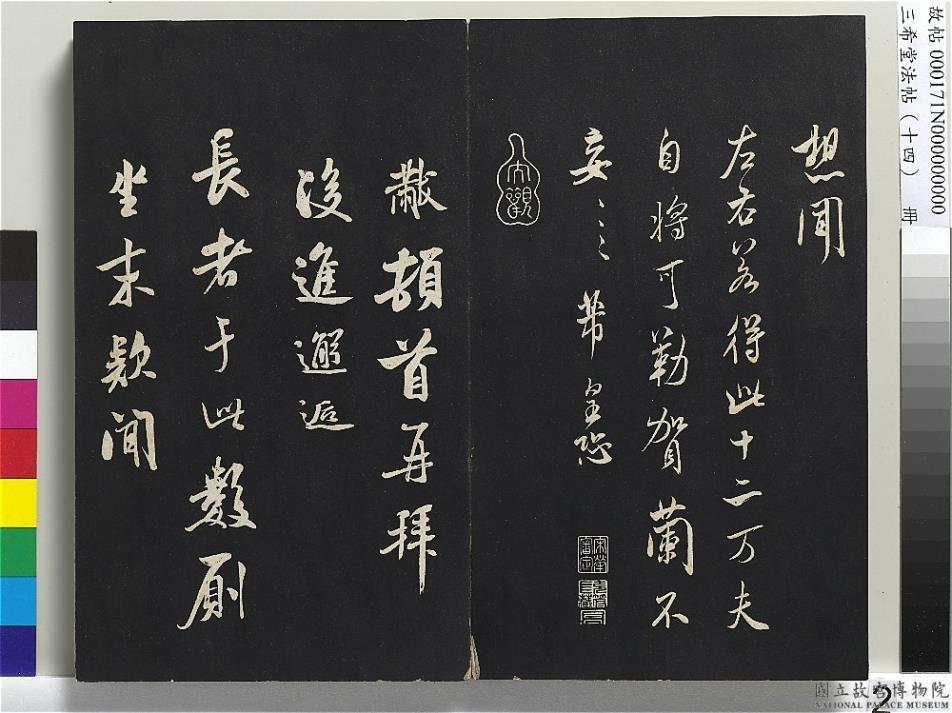 想聞
左右若得此十二万夫
自將可勒賀蘭不
妄〻〻芾皇恐
宋犖審定
黻頓首再拜
後進邂逅
長者于此數厠
坐末款聞
故帖 000171N000000000
三希堂法帖（十四） 冊
2
國立故宮博物院
NATIONAL PALACE MUSEUM